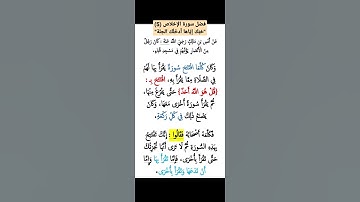 فضل سورة الإخلاص (5)
"حبك إياها أدخلك الجنة"
عَنْ أَنَسِ بْنِ مَالِكٍ رَضِيَ اللَّهُ عَنْهُ : كَانَ رَجُلٌ
مِنَ الْأَنْصَارِ يَؤُمُّهُمْ فِي مَسْجِدِ قُبَاءٍ،
وَكَانَ كُلَّمَا افْتَتَحَ سُورَةً يَقْرَأُ بِهَا لَهُمْ
فِي الصَّلَاةِ مِمَّا يَقْرَأُ بِهِ، افْتَتَحَ بِـ :
{قُلْ هُوَ اللَّهُ أَحَدٌ} حَتَّى يَفْرُغَ مِنْهَا،
ثُمَّ يَقْرَأُ سُورَةً أُخْرَى مَعَهَا، وَكَانَ
يَصْنَعُ ذَلِكَ فِي كُلِّ رَكْعَةٍ،
فَكَلَّمَهُ أَصْحَابُهُ فَقَالُوا : إِنَّكَ تَفْتَتِحُ
بِهَذِهِ السُّورَةِ ثُمَّ لَا تَرَى أَنَّهَا تُجْزِئُكَ
حَتَّى تَقْرَأَ بِأُخْرَى، فَإِمَّا تَقْرَأُ بِهَا وَإِمَّا
أَنْ تَدَعَهَا وَتَقْرَأَ بِأُخْرَى.